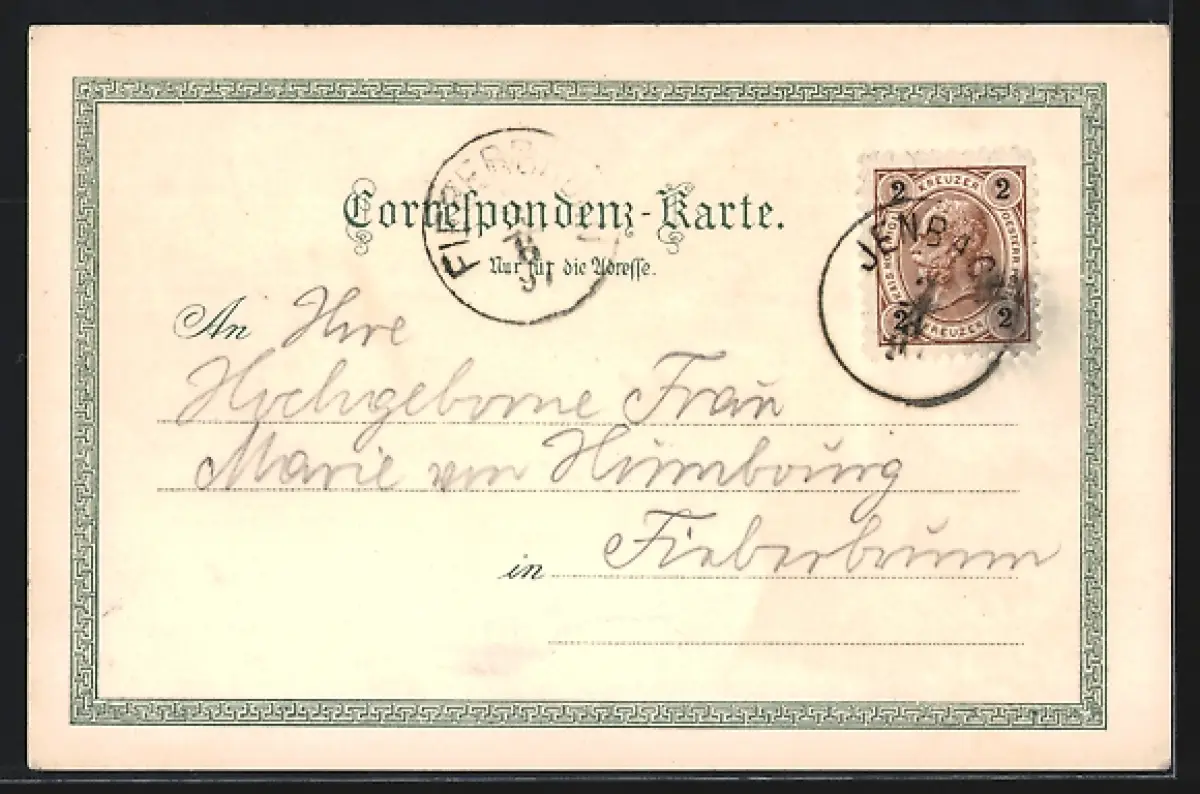 Correspondenz-Karte.
Nur für die Adresse.
FIEBERBRUNN
97
2 KREUZER 2
JENBACH
2 KREUZER 2
An Ihre
Hochgeborne Frau
Marie von Humbourg
in Fieberbrunn